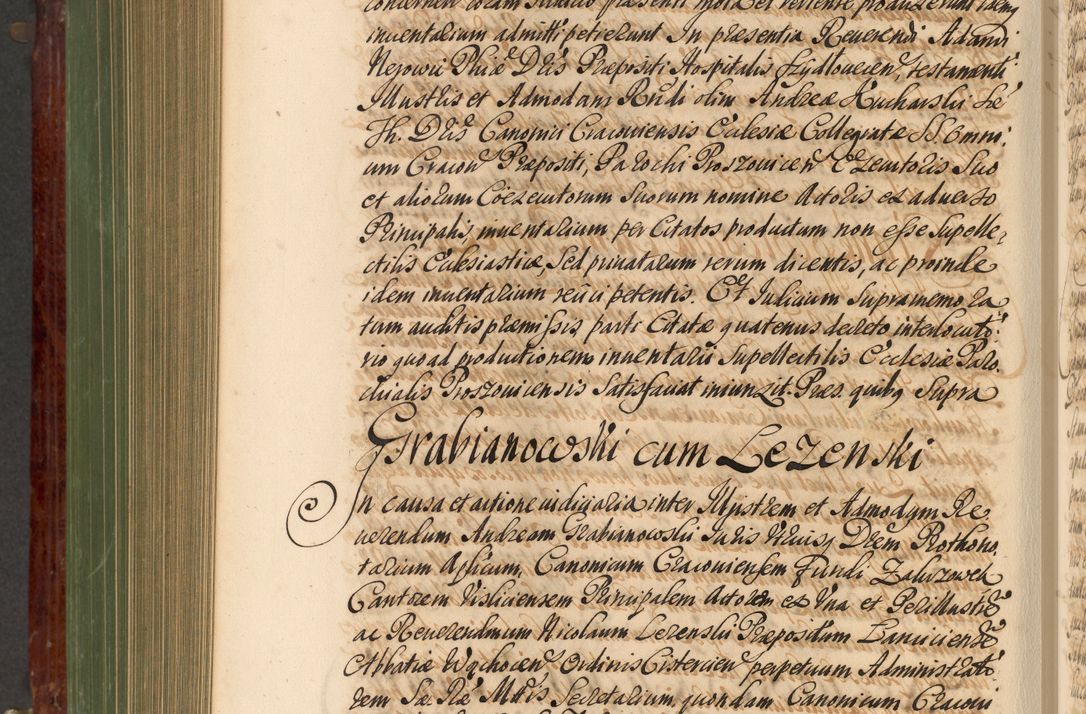 concernen coram Iudicio præsenti mota et vertente produxerunt idemq
inuentarium admitti petierunt In præsentia Reuerendi Adami
Nejowic Phiæ Dris Præpositi Hospitalis Szydlouecien, testamenti
Illustris et Admodum Rndi olim Andreæ Kucharski Sæ
Th. Dris Canonici Cracouiensis Ecclesiæ Collegiatæ SS. Omni
um Cracou Præpositi, Parochi Proszouicen Executoris Suo
et aliorum Coexecutorum Suorum nomine Actoris ex aduerso
Principalis inuentarium per Citatos productum non esse Supelle
ctilis Ecclesiasticæ, Sed priuatarum rerum dicentis, ac proinde
idem inuentarium reiici petentis. Et Iudicium Supramemora
tum auditis præmissis parti Citatæ quatenus decreto interlocuto
rio quoad productionem inuentarii Supellectilis Ecclesiæ Paro
chialis Proszouicensis Satisfaciat iniunxit. Præs. quibq Supra
Grabianowski cum Lezenski
In causa et actione iudiciaria inter Illustrem et Admodum Re
uerendum Andream Grabianowski Iuris Vtriusq Drem Prothono
tarium Aplicum, Canonicum Cracouiensem Fundi
Cantorem Visliciensem Principalem Actorem ex Vna et Perillustre
ac Reuerendmum Nicolaum Lezenski Præpositum Lanuciense
Abbatiæ Wąchocen Ordinis Cistercien perpetuum Administrato
rem Sæ Ræ Mtis Secretarium quondam Canonicum Cracoui